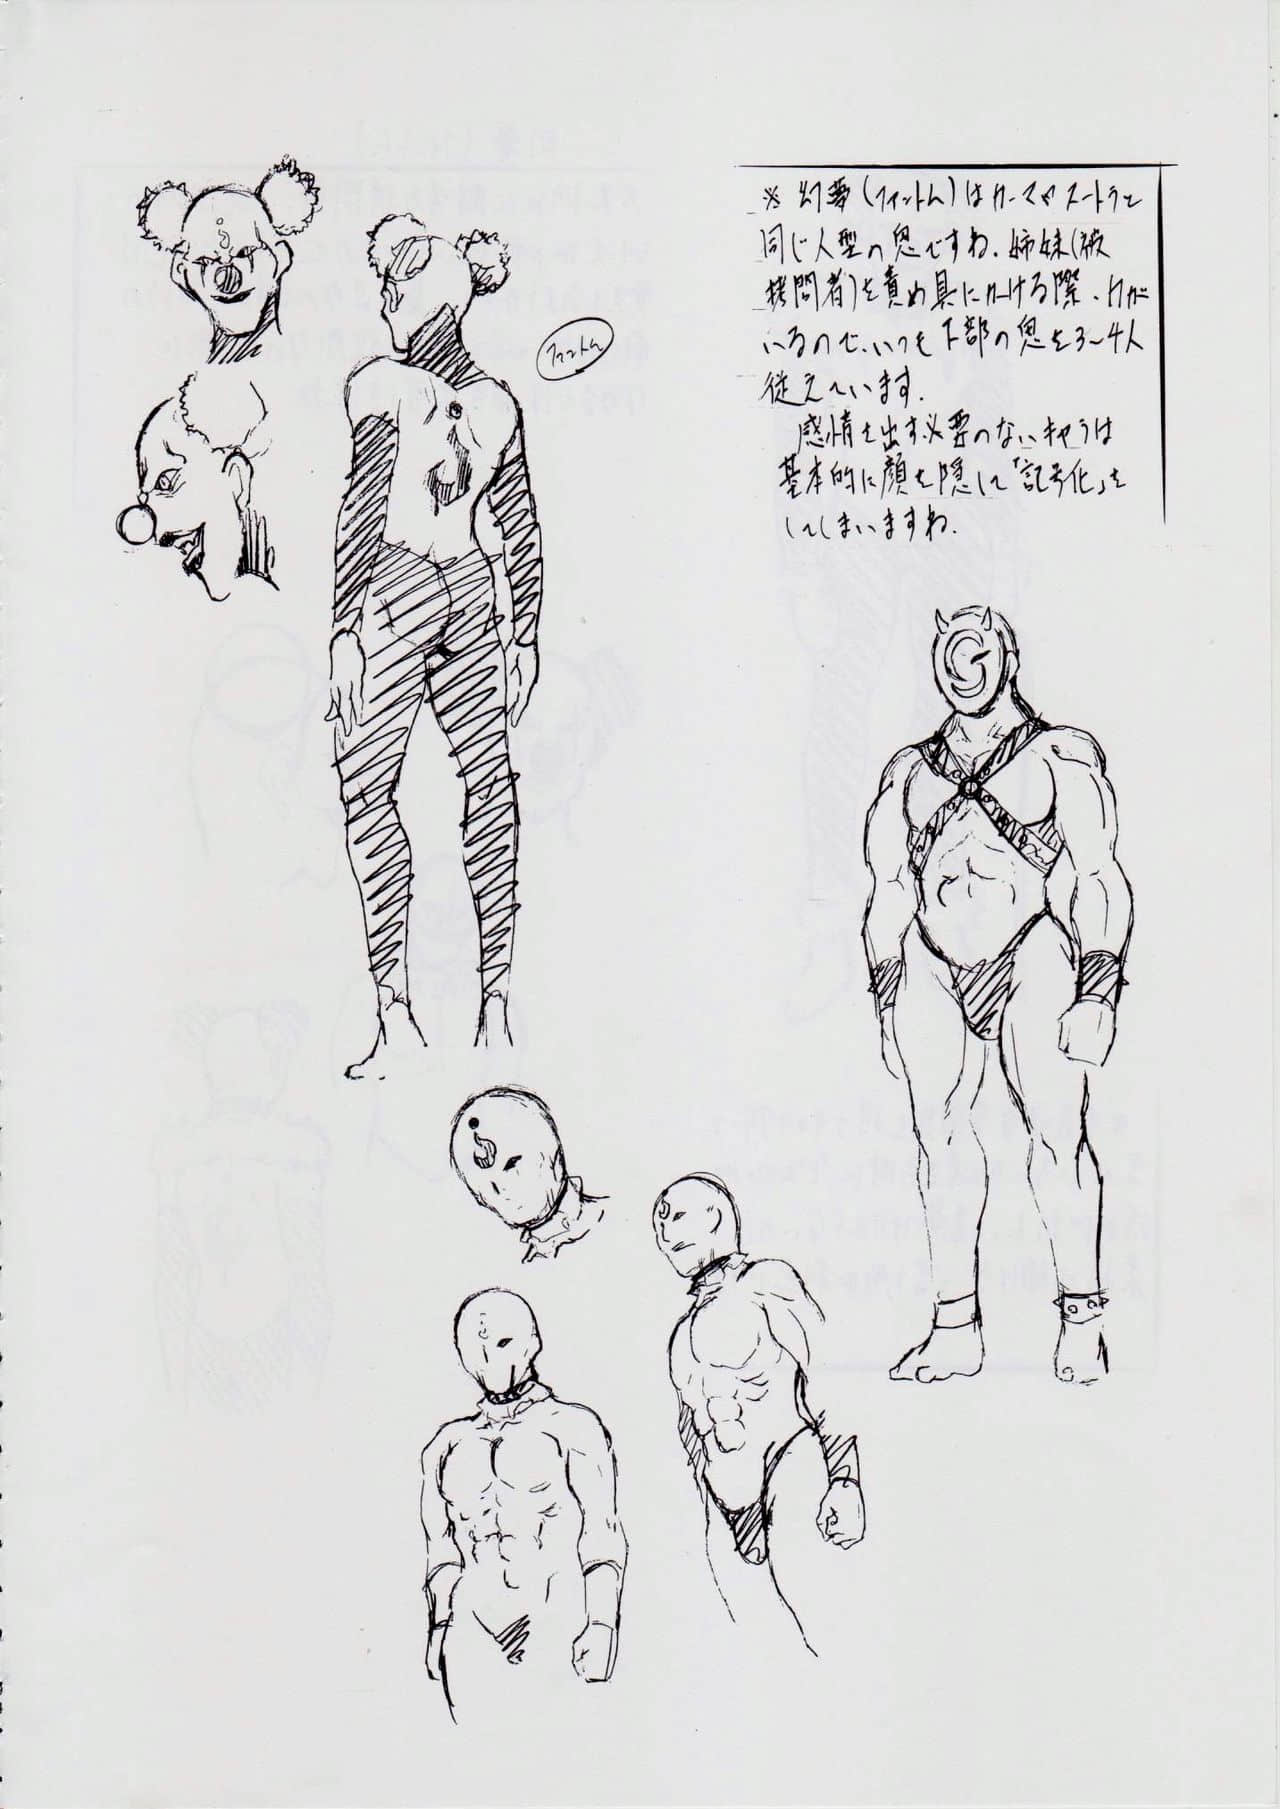 ※幻夢(フィットム)はカーマやスートラと
同じ人型の鬼ですね。姉妹(被
拷問者)を責め具にかける際、力が
いるので、いつも下部の鬼を3〜4人
従えています。
感情を出す必要のないキャラは
基本的に顔を隠して「記号化」を
してしまいますね。
フィットム